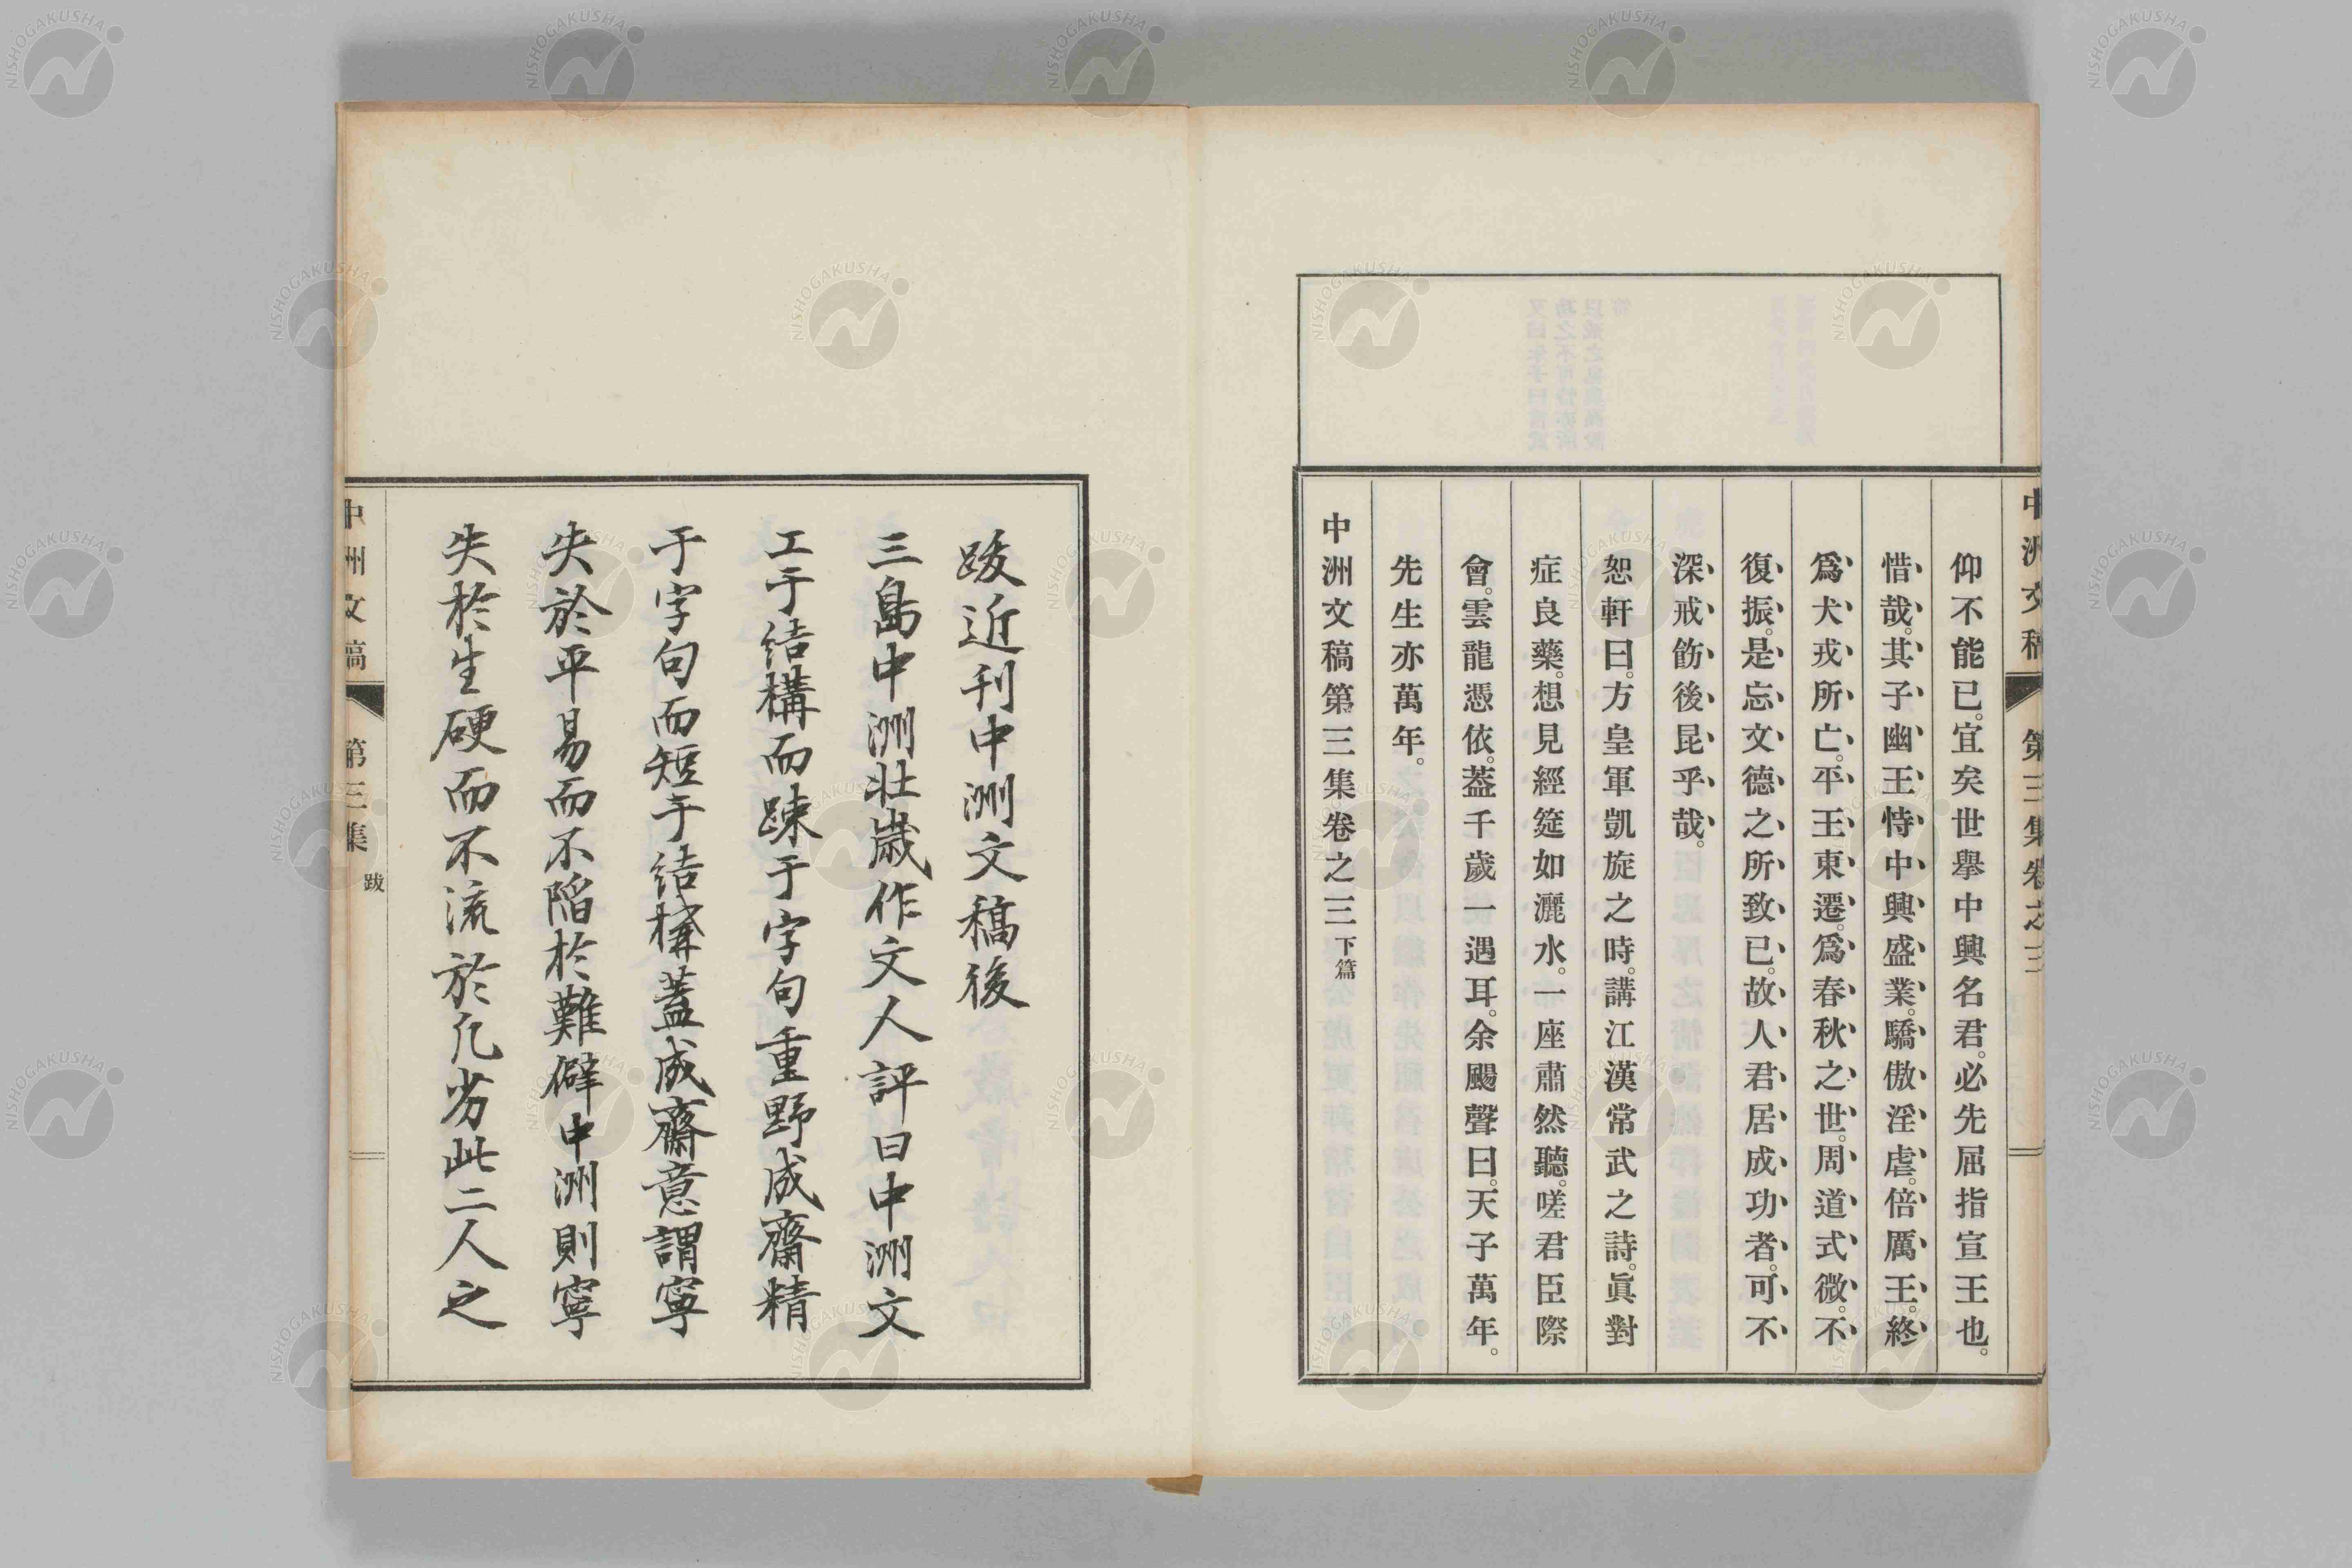 中洲文稿 第三集卷之三
仰不能已。宜矣世擧中興名君。必先屈指宣王也。
惜哉。其子幽王恃中興盛業。驕傲淫虐。倍厲王。終
爲犬戎所亡。平王東遷。爲春秋之世。周道式微。不
復振。是忘文德之所致已。故人君居成功者。可不
深戒飭後昆乎哉。
恕軒曰。方皇軍凱旋之時。講江漢常武之詩。眞對
症良藥。想見經筵如灑水。一座肅然聽。嗟君臣際
會。雲龍憑依。葢千歲一遇耳。余颺聲曰。天子萬年。
先生亦萬年。
中洲文稿第三集卷之三下篇
跋近刊中洲文稿後
三島中洲壯歲作文人評曰中洲文
工于结構而踈于字句重野成齋精
于字句而短于结構蓋成齋意謂寧
失於平易而不陷於難僻中洲則寧
失於生硬而不流於凡劣此二人之
中洲文稿 第三集 跋
NISHOGAKUSHA